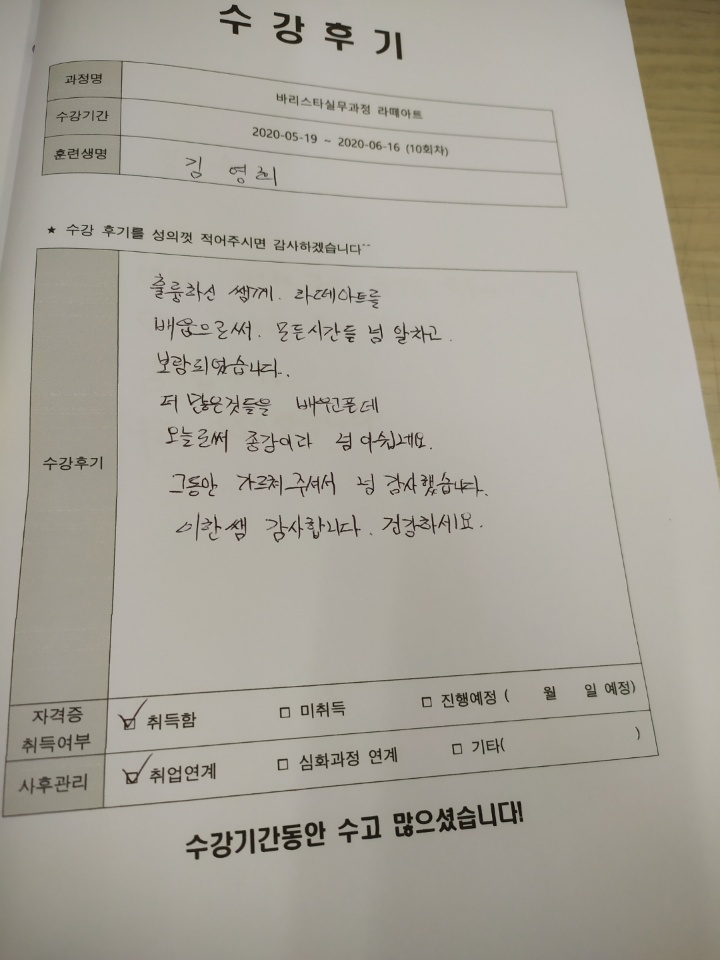 수강후기
과정명 바리스타실무과정 라떼아트
수강기간 2020-05-19 ~ 2020-06-16 (10회차)
훈련생명 김 영희
★ 수강 후기를 성의껏 적어주시면 감사하겠습니다^^
수강후기
훌륭하신 쌤께. 라떼아트를
배움으로써. 모든시간들 넘 알차고.
보람되었습니다.
더 많은것들을 배워픈데
오늘로써 종강이라 넘 아쉽네요.
그동안 가르쳐주셔서 넘 감사했습니다.
이한쌤 감사합니다. 건강하세요.
자격증 취득여부 ☑ 취득함 □ 미취득 □ 진행예정 ( 월 일 예정)
사후관리 ☑ 취업연계 □ 심화과정 연계 □ 기타( )
수강기간동안 수고 많으셨습니다!